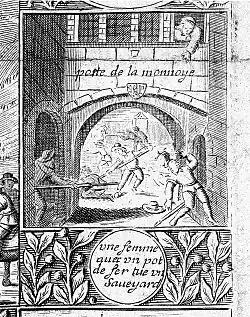 porte de la monnoye
vne femme
quec vn pot
de fer tüe vn
Sauoyard